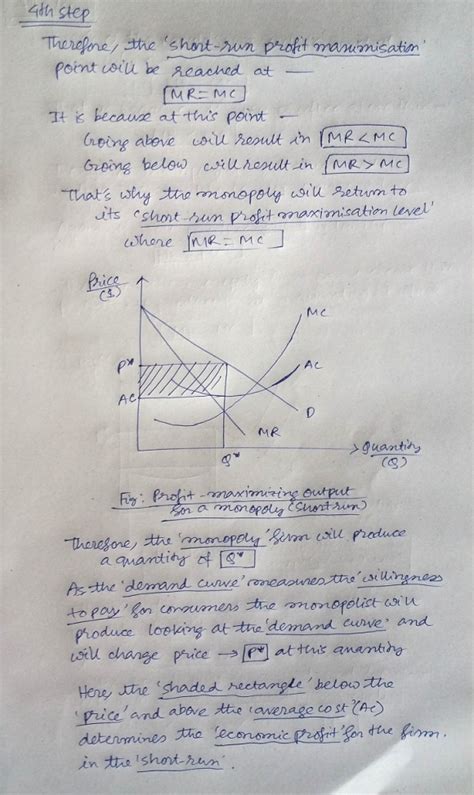 4th step
Therefore, the 'short-run profit maximisation'
point will be reached at —
MR = MC
It is because at this point —
Going above will result in MR < MC
Going below will result in MR > MC
That's why the monopoly will return to
its 'short-run profit maximisation level'
where MR = MC
Price
($)
MC
P*
AC
AC
D
MR
Q*
Quantity
(Q)
Fig: Profit-maximizing output
for a monopoly (short run)
Therefore, the 'monopoly' firm will produce
a quantity of Q*
As the 'demand curve' measures the 'willingness
to pay' for consumers the monopolist will
produce looking at the 'demand curve' and
will charge price → P* at this quantity
Here, the 'shaded rectangle' below the
'price' and above the 'average cost' (AC)
determines the 'economic profit' for the firm.
in the 'short-run'.